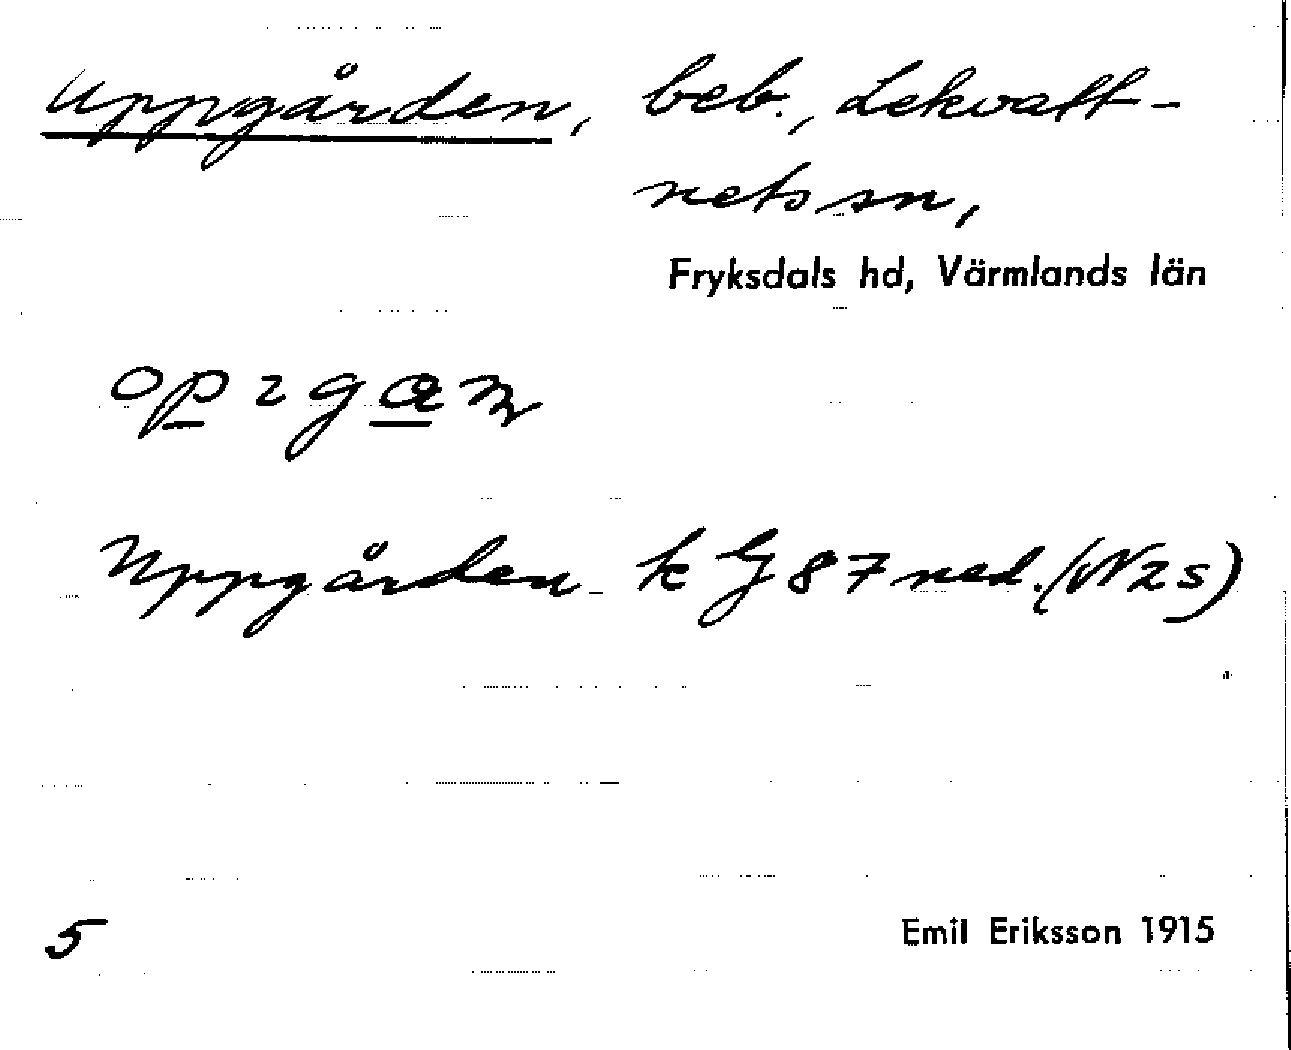 Uppgården, beb., Lekvatt-
nets sn,
Fryksdals hd, Värmlands län
Uppgården k G 87 ned. (N2s)
5
Emil Eriksson 1915